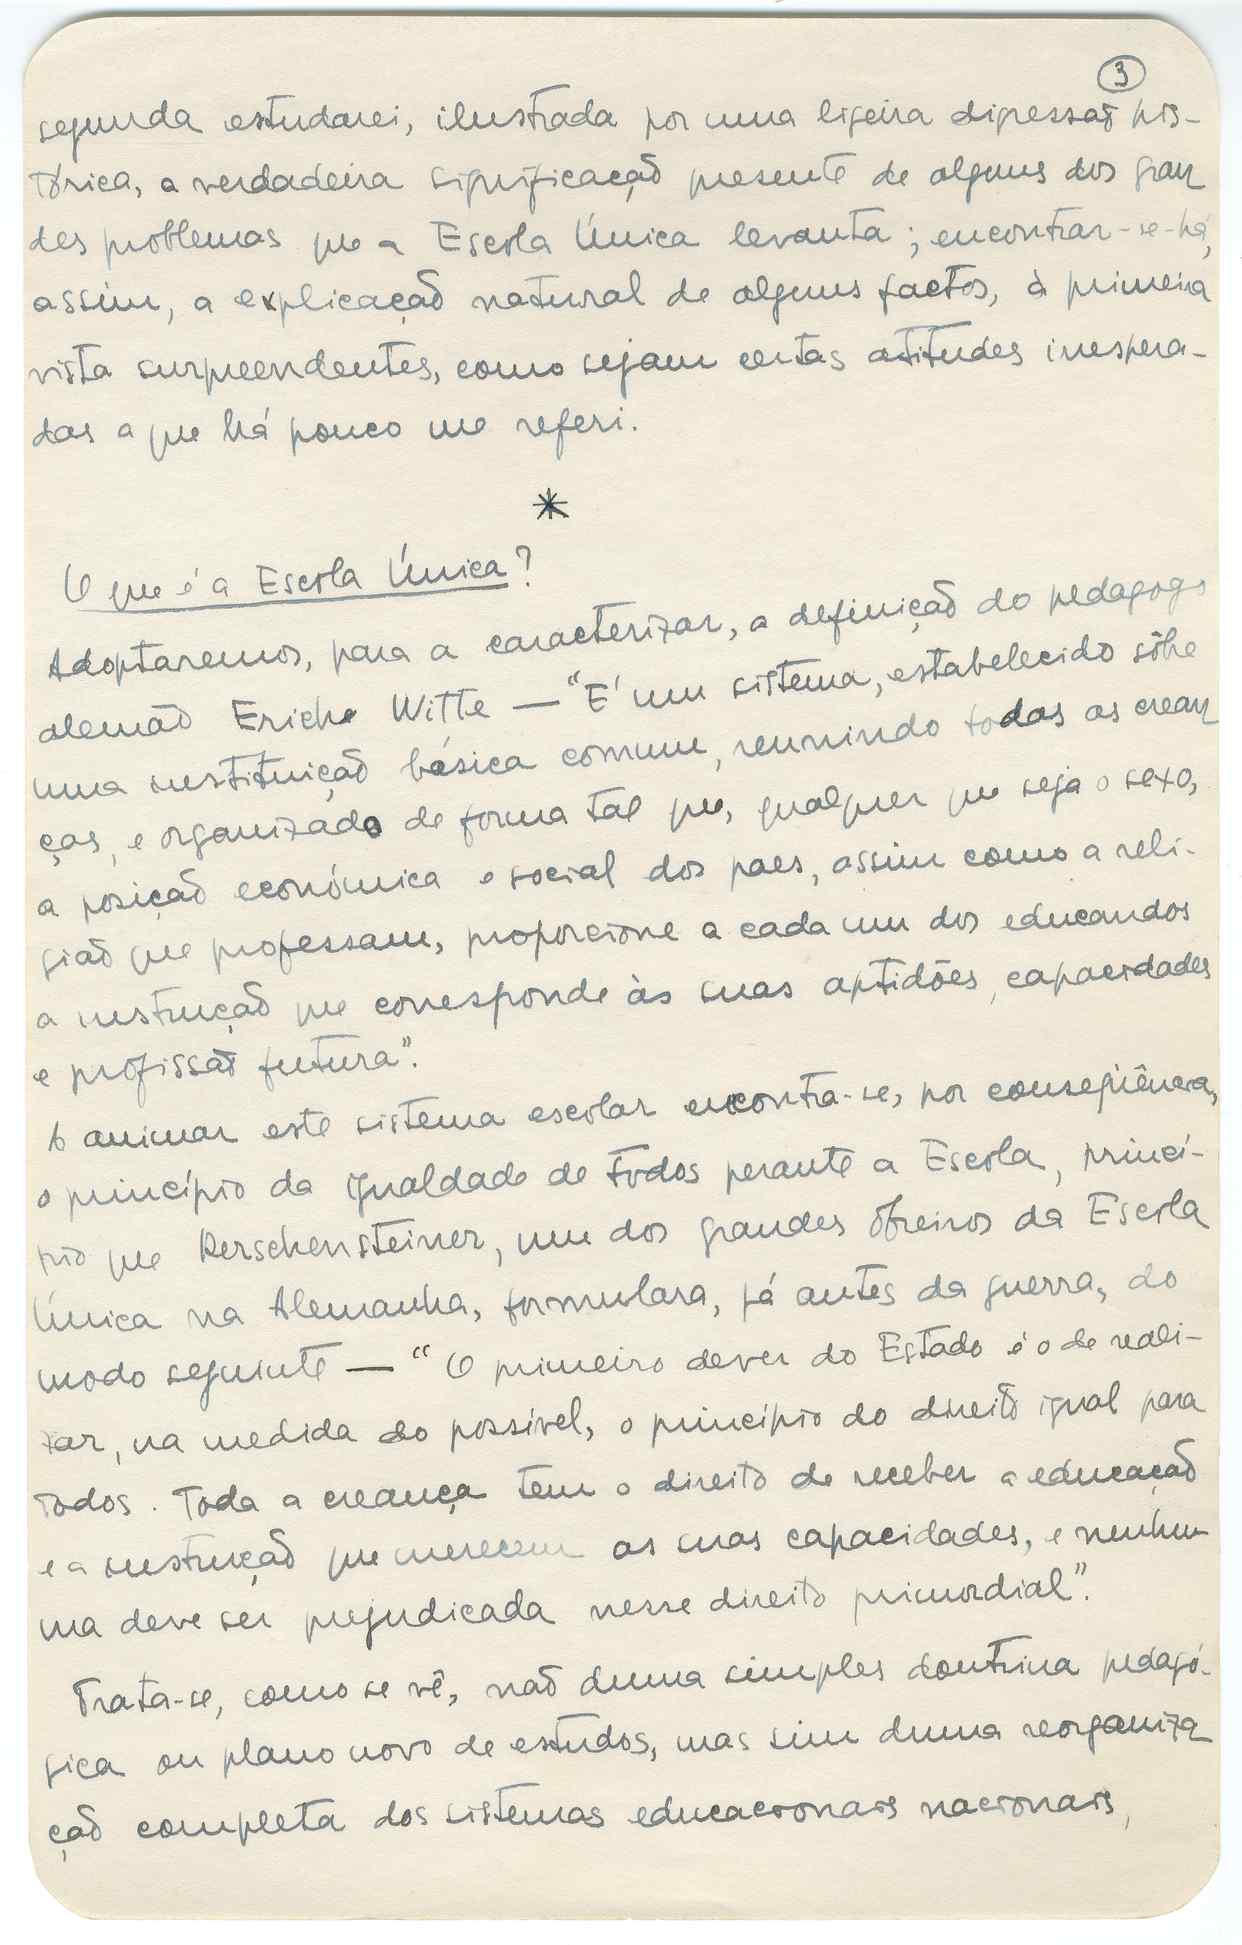 3
segunda estudarei, ilustrada por uma ligeira digressão his-
tórica, a verdadeira significação presente de alguns dos gran
des problemas que a Escola Única levanta; encontrar-se-há,
assim, a explicação natural de alguns factos, à primeira
vista surpreendentes, como sejam certas atitudes inespera-
das a que há pouco me referi.
*
O que é a Escola Única?
Adoptaremos, para a caracterizar, a definição do pedagogo
alemão Erich Witte — "É um sistema, estabelecido sôbre
uma instituição básica comum, reunindo todas as crean
ças, e organizado de forma tal que, qualquer que seja o sexo,
a posição económica e social dos paes, assim como a reli-
gião que professam, proporcione a cada um dos educandos
a instrução que corresponde às suas aptidões, capacidades
e profissão futura".
A animar este sistema escolar encontra-se, por conseqüência,
o princípio da igualdade de todos perante a Escola, princí-
pio que Kerschensteiner, um dos grandes obreiros da Escola
Única na Alemanha, formulara, já antes da guerra, do
modo seguinte — "O primeiro dever do Estado é o de reali-
zar, na medida do possível, o princípio do direito igual para
todos. Toda a creança tem o direito de receber a educação
e a instrução que merecem as suas capacidades, e nenhu-
ma deve ser prejudicada nesse direito primordial".
Trata-se, como se vê, não duma simples doutrina pedagó-
gica ou plano novo de estudos, mas sim duma reorganiza
ção completa dos sistemas educacionais nacionais,